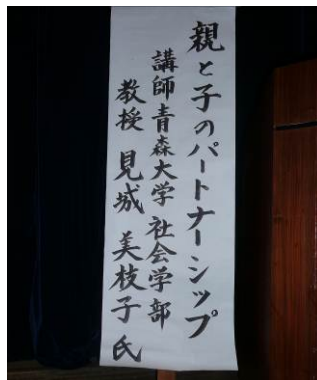 親と子のパートナーシップ
講師青森大学社会学部
教授 見城美枝子氏